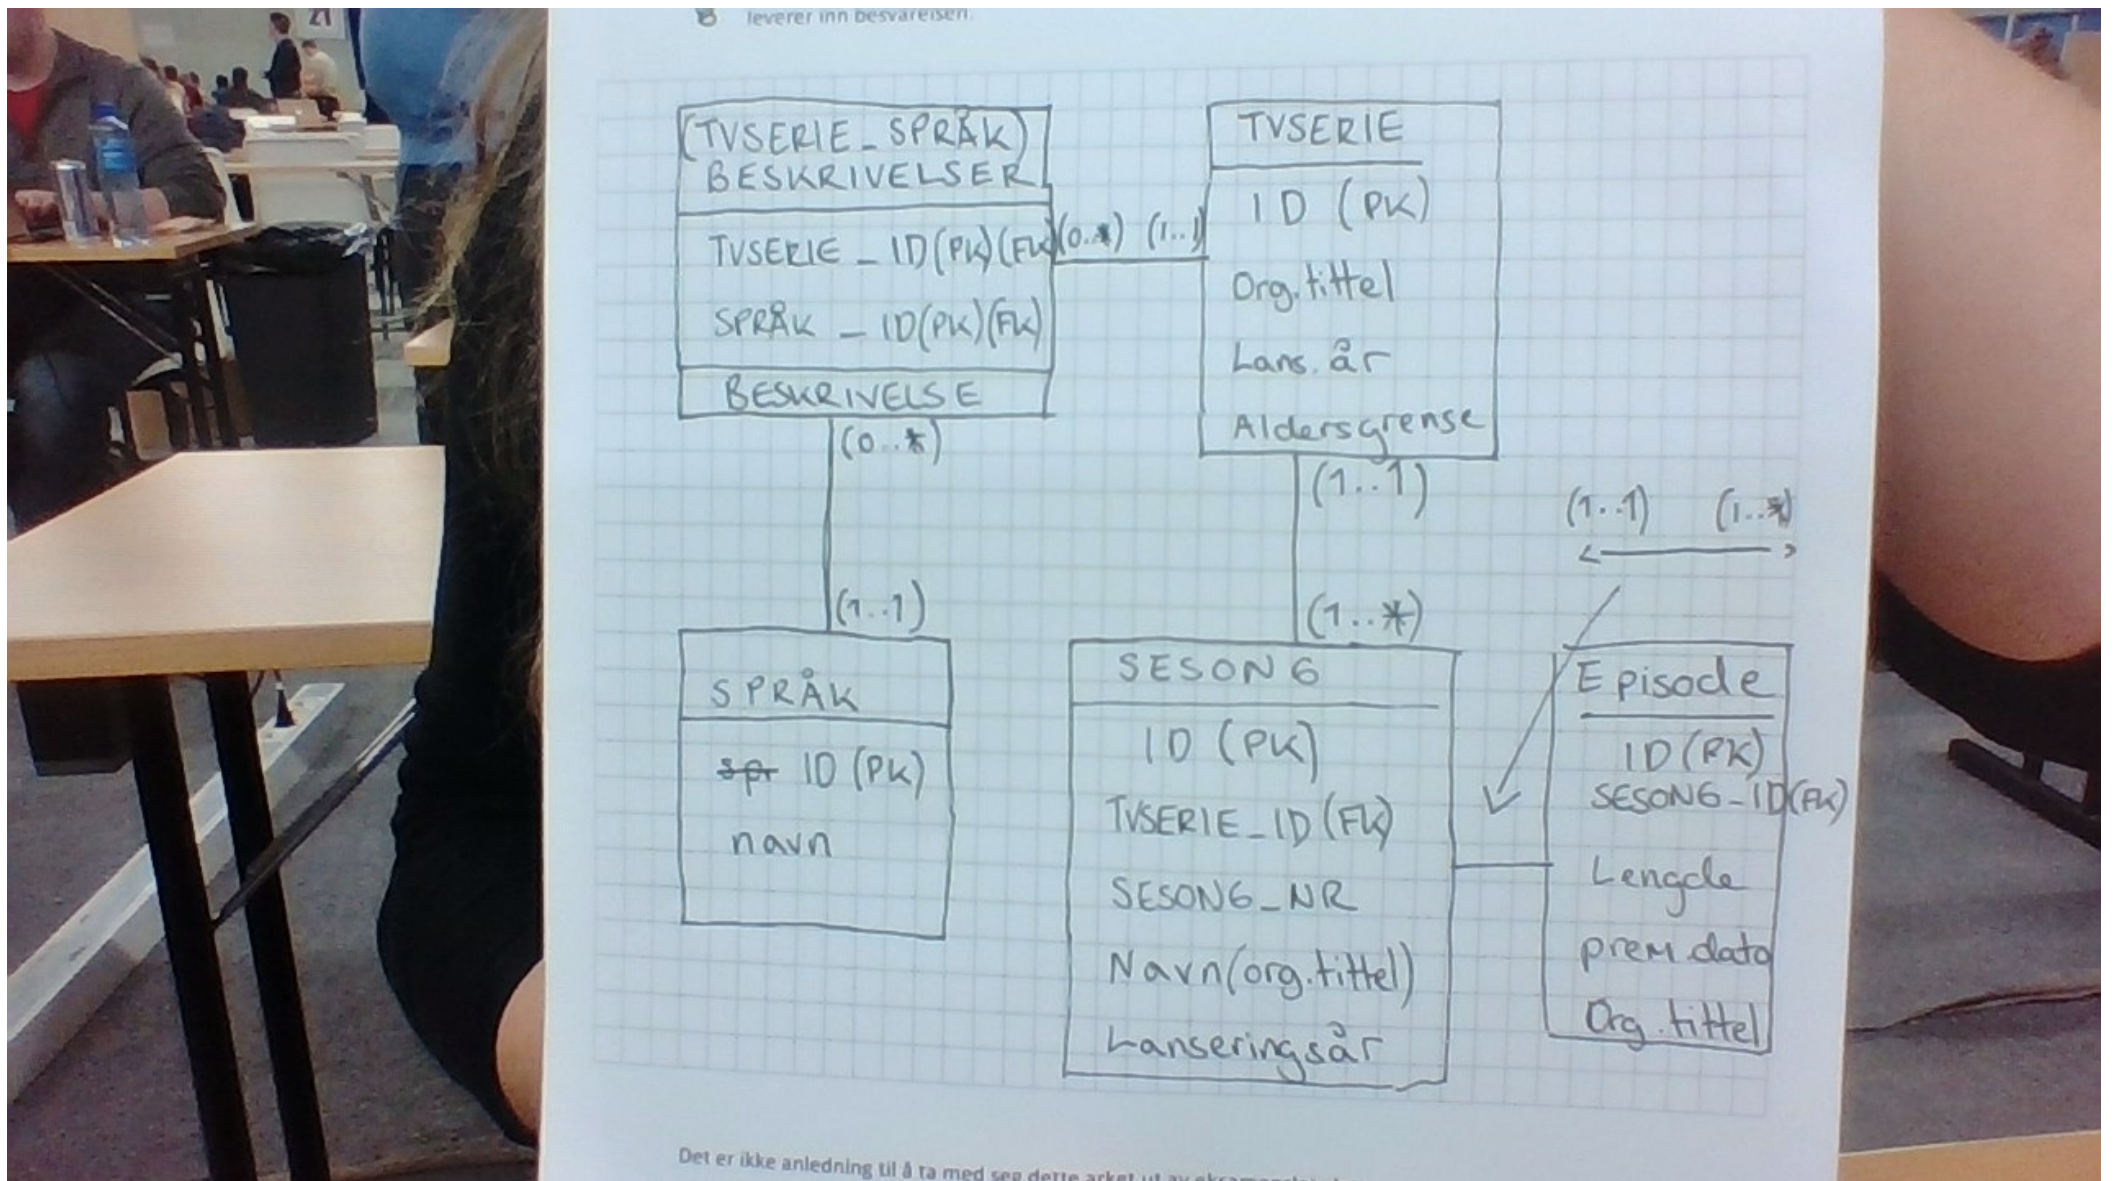 21
leverer inn besvarelsen.
(TVSERIE_SPRÅK)
BESKRIVELSER
TVSERIE_ID(PK)(FK)
SPRÅK_ID(PK)(FK)
BESKRIVELSE
(0..*) (1..1)
TVSERIE
ID (PK)
Org.tittel
Lans.år
Aldersgrense
(0..*)
(1..1)
(1..1)
(1..*)
(1..1) (1..*)
SPRÅK
spr ID (PK)
navn
SESONG
ID (PK)
TVSERIE_ID (FK)
SESONG_NR
Navn(org.tittel)
Lanseringsår
Episode
ID (PK)
SESONG_ID(FK)
Lengde
prem.dato
Org.tittel
Det er ikke anledning til å ta med seg dette arket ut av